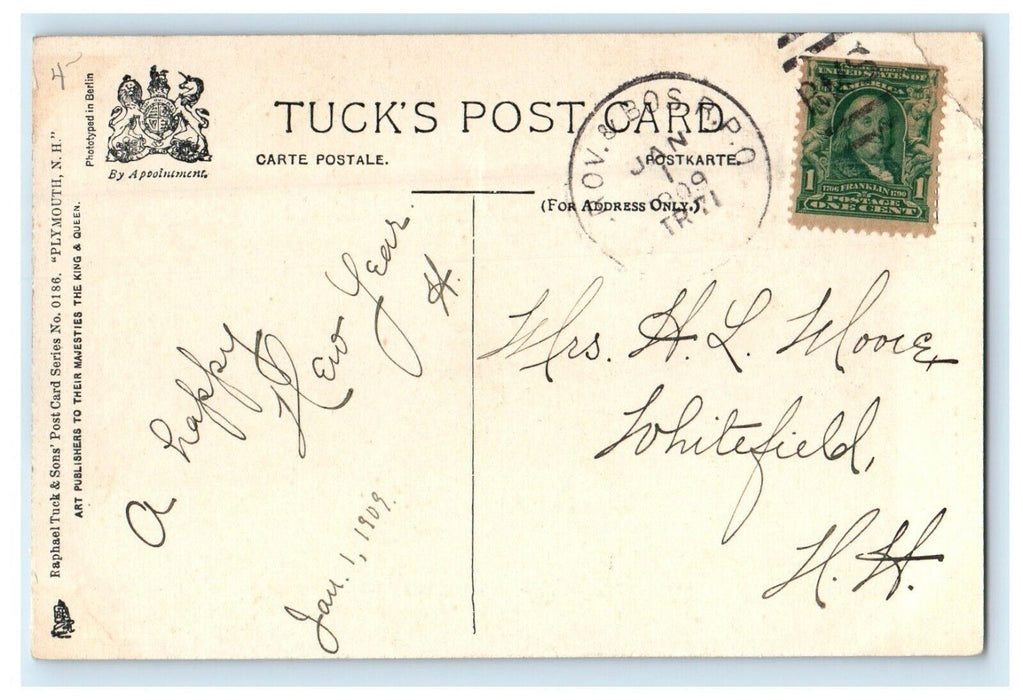 4-
Phototyped in Berlin
By Appointment.
Raphael Tuck & Sons' Post Card Series No. 0186. "PLYMOUTH, N. H."
ART PUBLISHERS TO THEIR MAJESTIES THE KING & QUEEN.
TUCK'S POST CARD
CARTE POSTALE.
POSTKARTE.
(FOR ADDRESS ONLY.)
& BOS. R.P.O.
JAN
1
1909
TR 71
UNITED STATES OF
AMERICA
1 1706 FRANKLIN 1790 1
POSTAGE
ONE CENT
A happy
New Year.
H.
Jan. 1, 1909.
Mrs. H. L. Moore,
Whitefield,
N. H.